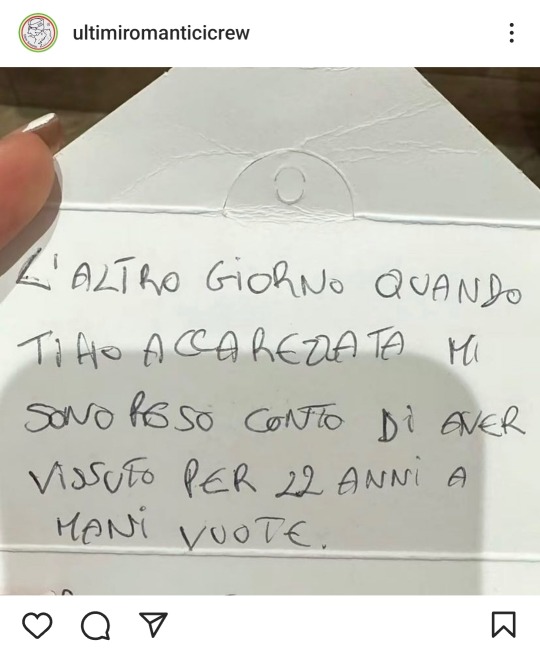 ultimiromanticicrew
L'ALTRO GIORNO QUANDO
TI HO ACCAREZZATA MI
SONO RESO CONTO DI AVER
VISSUTO PER 22 ANNI A
MANI VUOTE.